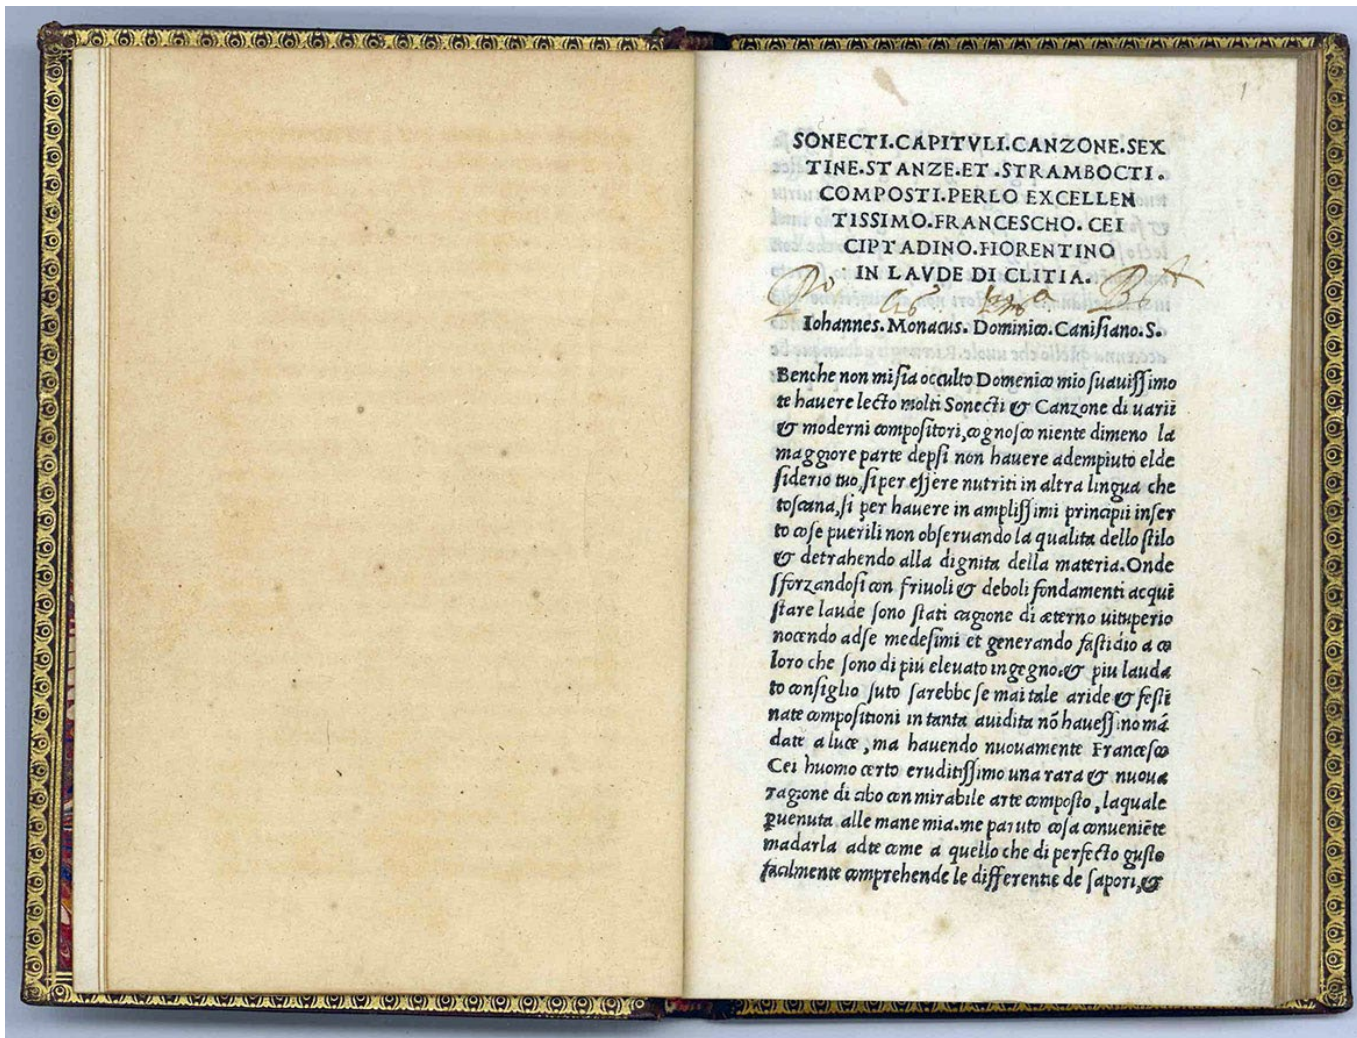 1
SONECTI.CAPITVLI.CANZONE.SEX
TINE.STANZE.ET.STRAMBOCTI.
COMPOSTI.PERLO EXCELLEN
TISSIMO.FRANCESCHO. CEI
CIPTADINO.FIORENTINO
IN LAVDE DI CLITIA.
Iohannes. Monacus. Dominico. Canisiano. S.
Benche non mi sia occulto Domenico mio suauissimo
te hauere lecto molti Sonecti & Canzone di uarii
& moderni compositori, cognosco niente dimeno la
maggiore parte depsi non hauere adempiuto elde
siderio tuo, si per essere nutriti in altra lingua che
toscana, si per hauere in amplissimi principii inser
to cose puerili non obseruando la qualita dello stilo
& detrahendo alla dignita della materia. Onde
sforzandosi con friuoli & deboli fondamenti acqui
stare laude sono stati cagione di æterno uituperio
nocendo adse medesimi et generando fastidio a co
loro che sono di piu eleuato ingegno. & piu lauda
to consiglio suto sarebbe se mai tale aride & festi
nate compositioni in tanta auidita nō hauessino mā
date a luce, ma hauendo nuouamente Francesco
Cei huomo certo eruditissimo una rara & nuoua
ragione di cibo con mirabile arte composto, laquale
ꝑuenuta alle mane mia. me paruto cosa conueniēte
madarla adte come a quello che di perfecto gusto
facilmente comprehende le differentie de sapori, &